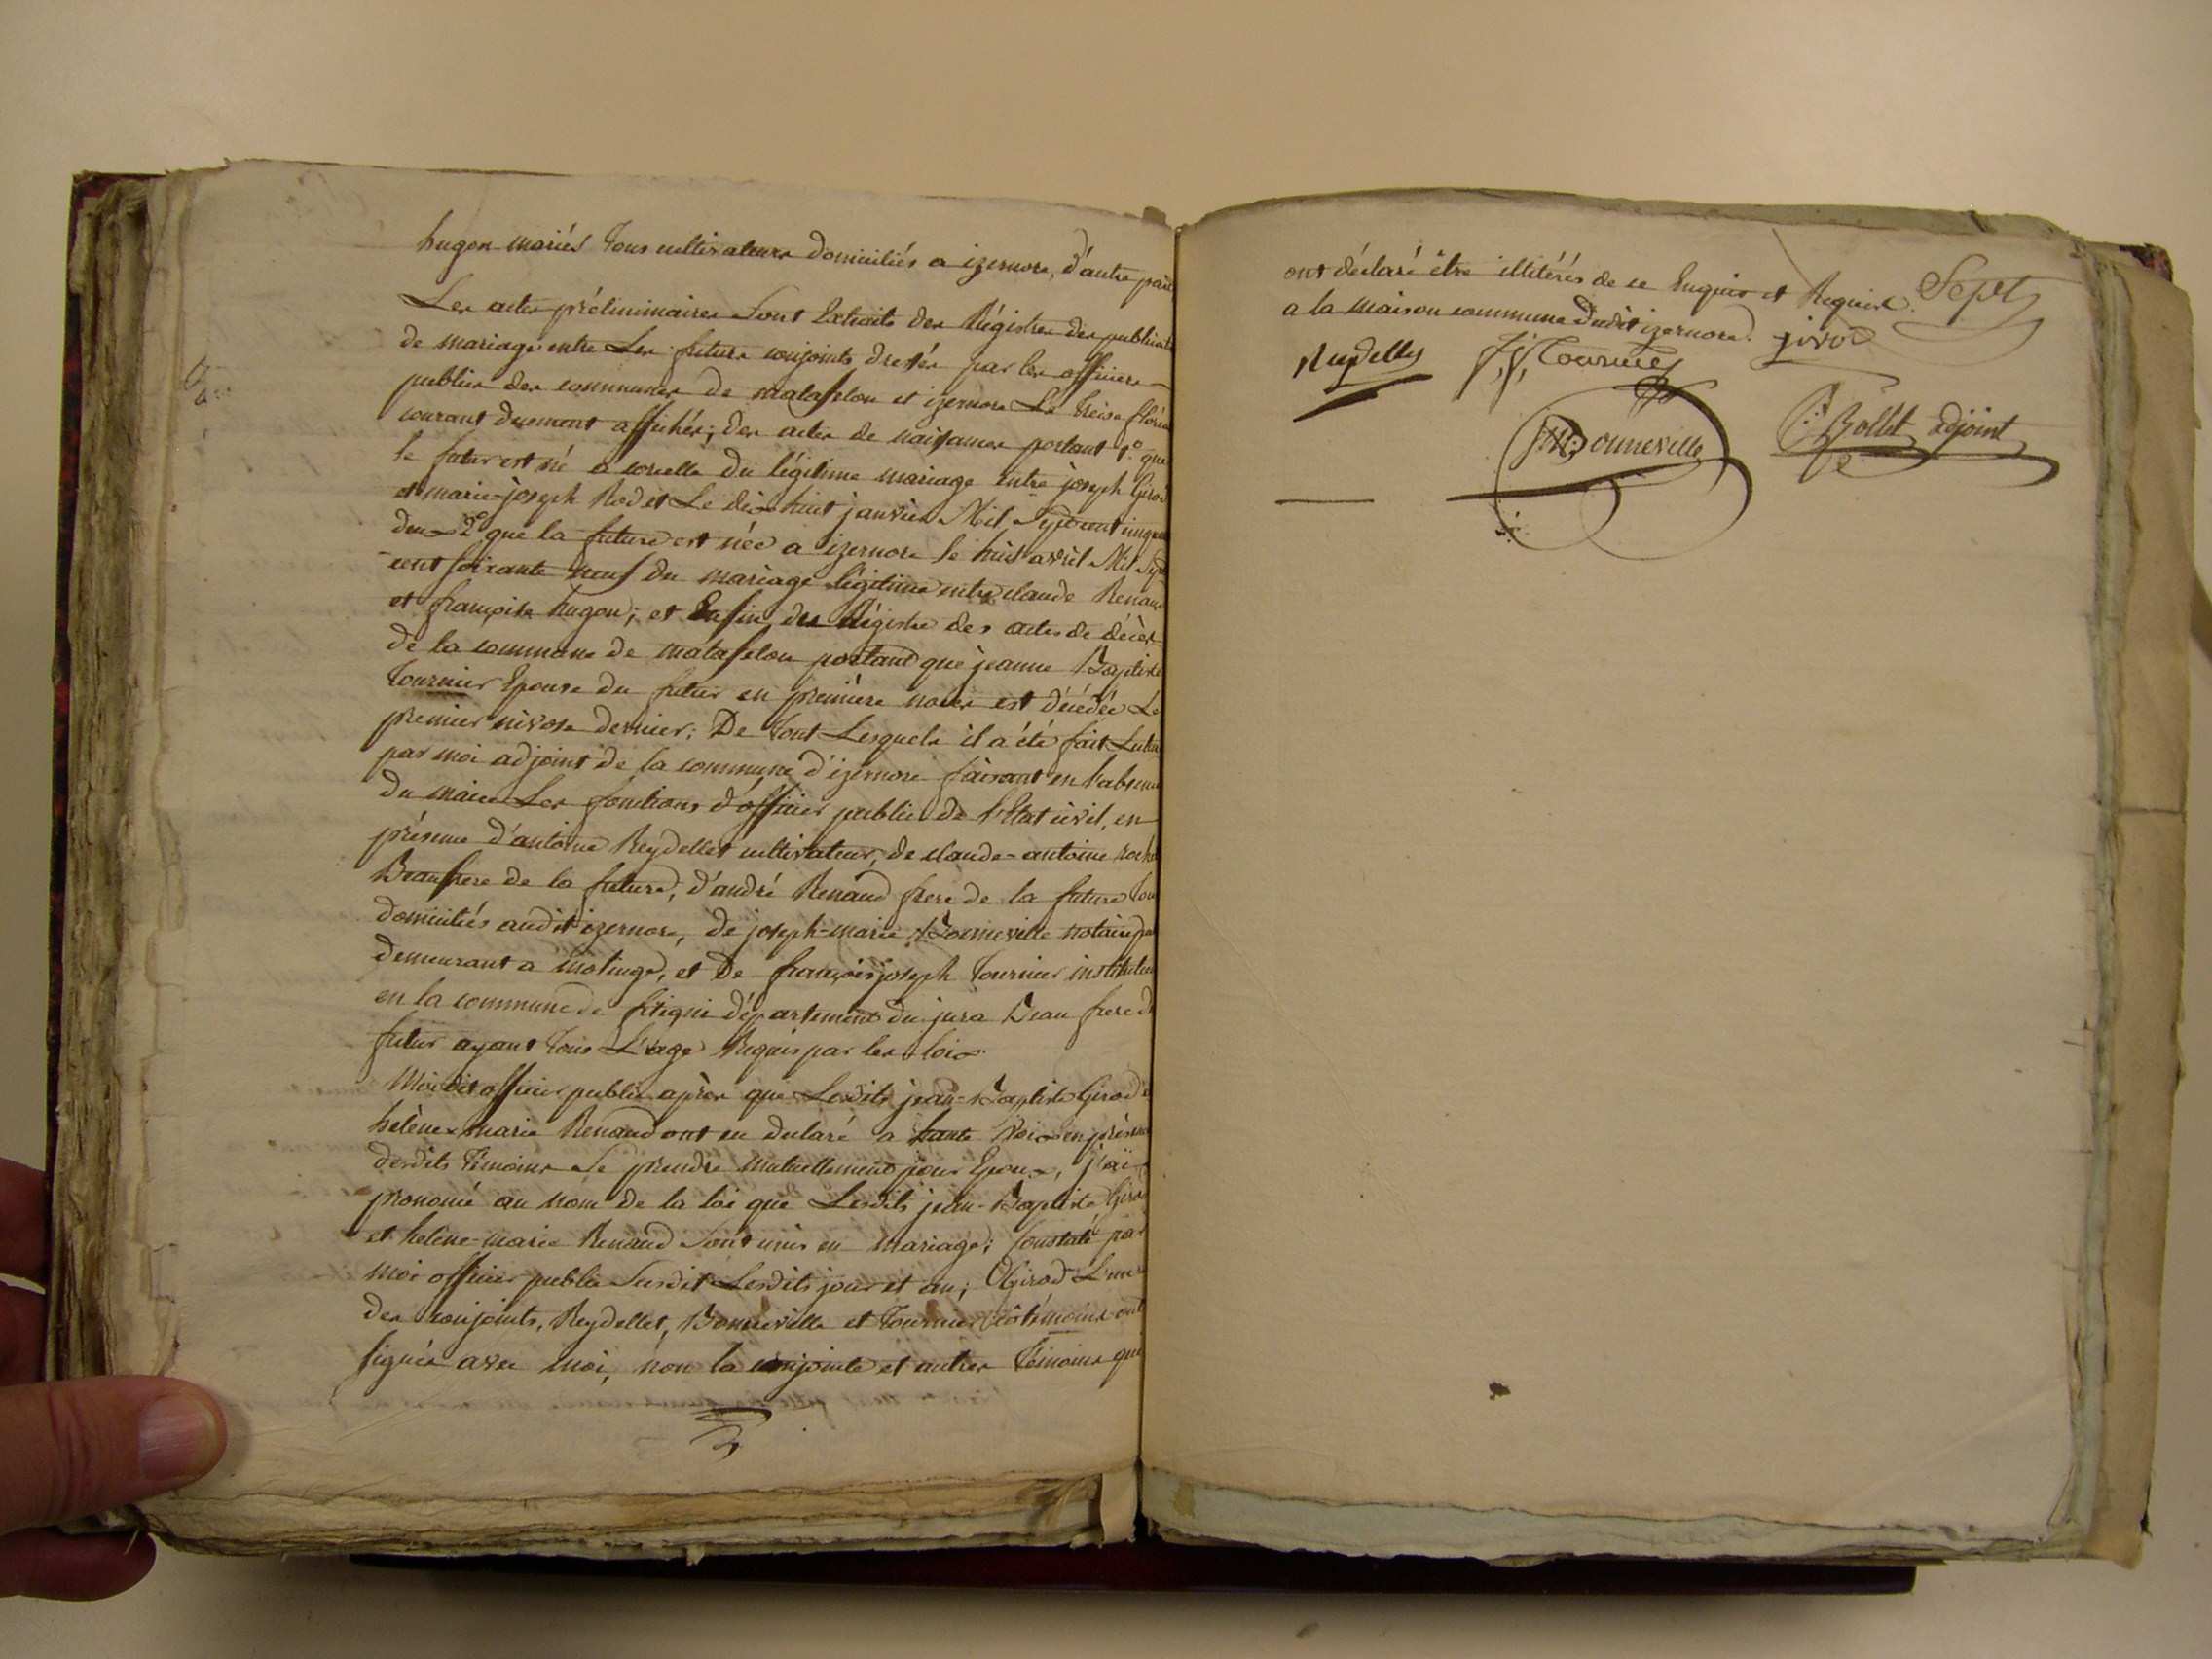 hugon mariés Tous cultivateurs domiciliés a izernore, d'autre part
Les actes préliminaires Sont Extraits des Régistres des publicat
de mariage entre Les futurs conjoints dressés par les officiers
publics des communes de matafelon et izernore Le Treise floréal
courant duement affichés; des actes de naissances portant 1.° que
le futur est né a corcelle du légitime mariage entre joseph Girod
et marie-joseph Rodet Le dix huit janvier Mil Sept cent cinquan
deux 2.° que la future est née a izernore le huit avril Mil Sept
cent soixante neuf du mariage légitime entre claude Renaud
et françoise hugon; et Enfin des Régistre des actes de décès
de la commune de matafelon portant que jeanne Baptiste
Tournier Epouse du futur en première noces est décédée Le
premier nivose dernier: De Tout Lesquels il a été fait Lectur
par moi adjoint de la commune d'izernore faisant en l'absence
du maire Les fonctions d'officier public de l'Etat civil, en
présence d'antoine Reydellet cultivateur, de claude-antoine
Beaufrere de la future, d'andré Renaud frere de la future Tou
domiciliés audit izernore, de joseph-marie Bonneville notaire
demeurant a molinge, et De françois joseph Tournier instituteur
en la commune de département du jura Beau frere d
futur ayant Tous L'age Requis par les loix
Moi dit officier public après que Lesdits jean-Baptiste Girod e
helène-marie Renaud ont eu déclaré a haute voix en présence
desdits Témoins Se prendre mutuellement pour Epoux, j'ai
prononcé au nom de la loi que Lesdits jean-Baptiste Girod
et helene-marie Renaud Sont unis en mariage; Constaté par
moi officier public Susdit Lesdits jour et an; Girod L'un
des conjoints, Reydellet, Bonneville et Tournier témoins ont
signés avec moi, non la conjointe et autres Témoins qui
ont déclaré être illitérés de ce Enquis et Requis. Sept
a la maison commune dudit izernore. girod
Reydellet fs js Tournier
JM Bonneville Bollet adjoint